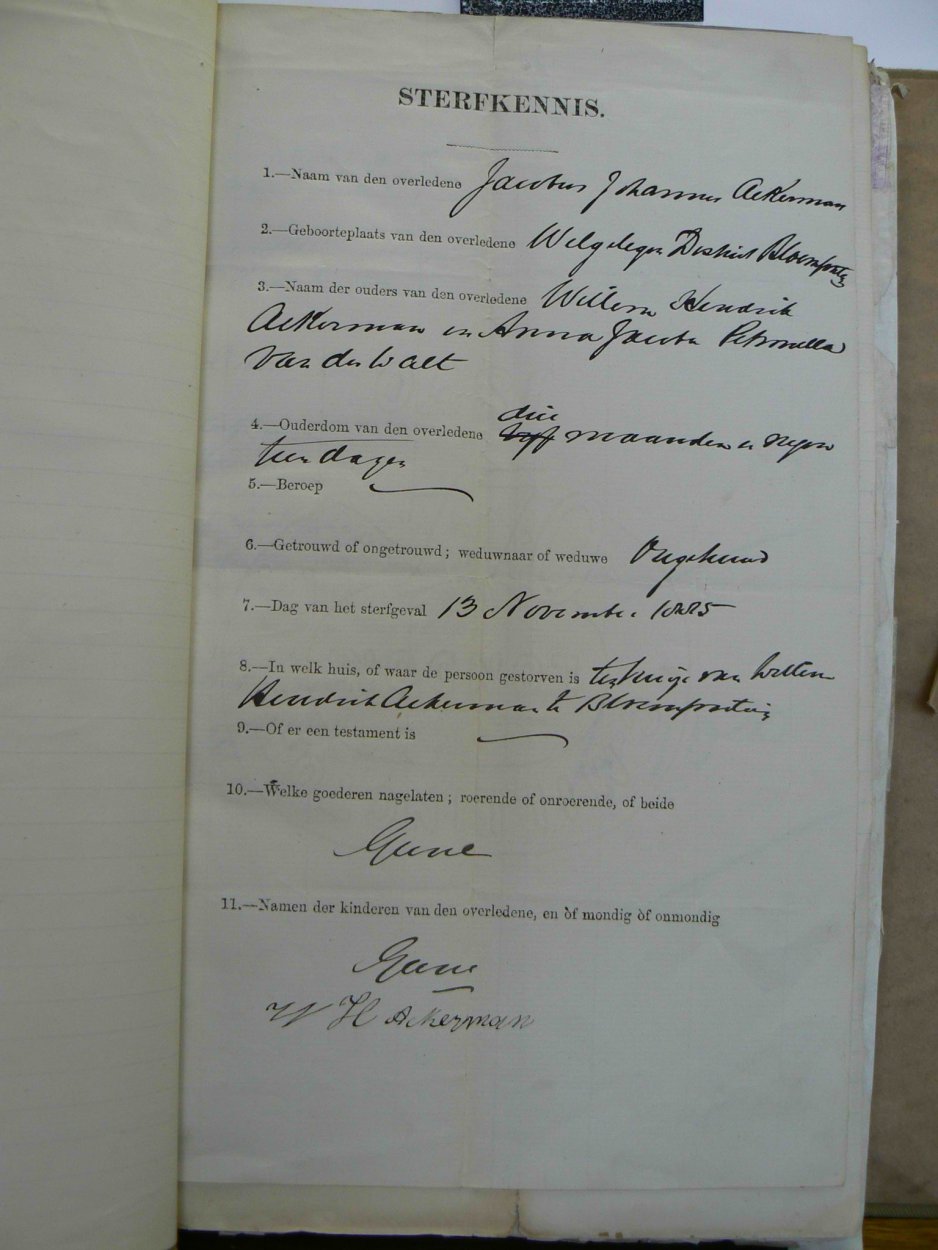 STERFKENNIS.
1.—Naam van den overledene Jacobus Johannes Ackerman
2.—Geboorteplaats van den overledene Welgelegen District Bloemfontein
3.—Naam der ouders van den overledene Willem Hendrik
Ackerman en Anna Jacoba Petronella
van der Walt
4.—Ouderdom van den overledene drie maanden en negen
tien dagen
5.—Beroep
6.—Getrouwd of ongetrouwd; weduwnaar of weduwe Ongehuwd
7.—Dag van het sterfgeval 13 November 1885
8.—In welk huis, of waar de persoon gestorven is ten huize van Willem
Hendrik Ackerman te Bloemfontein
9.—Of er een testament is
10.—Welke goederen nagelaten; roerende of onroerende, of beide
Geene
11.—Namen der kinderen van den overledene, en òf mondig òf onmondig
Geene
W H Ackerman